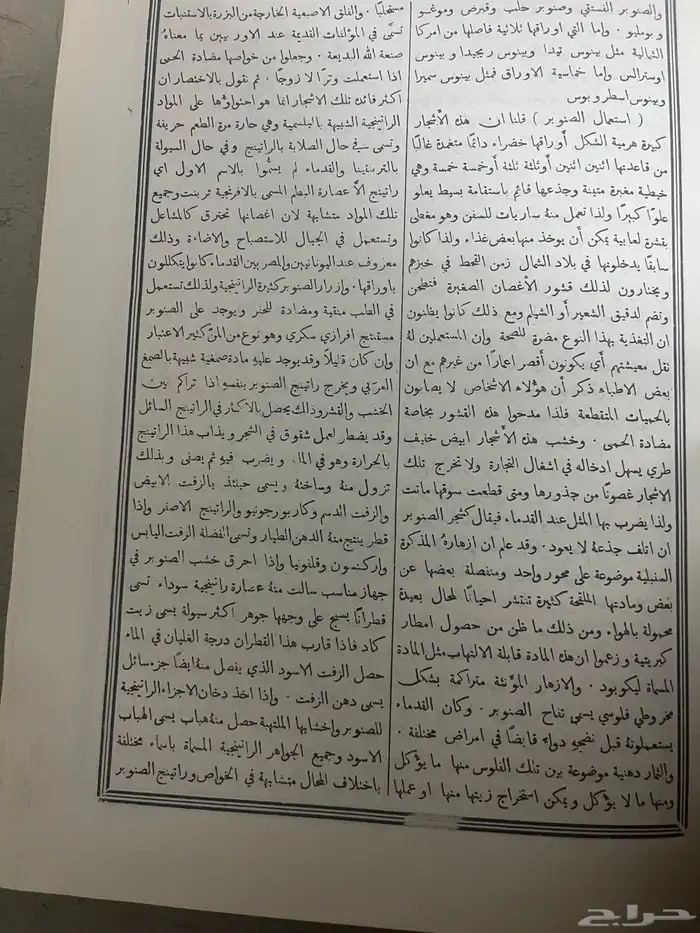 والصنوبر الفستقي وصنوبر حلب وقبرص وموغو
وبومليو . واما التي اوراقها ثلاثية فاصلها من امركا
الشمالية مثل بينوس تيدا وبينوس ريجيدا وبينوس
اوسترالس واما خماسية الاوراق فمثل بينوس سميرا
وبينوس اسطروبوس
( استعمال الصنوبر ) قلنا ان هذه الأشجار
كبيرة هرمية الشكل أوراقها خضراء دائمًا متغمدة غالبًا
من قاعدتها اثنين اثنين أو ثلثة ثلثة أو خمسة خمسة وهي
خيطية مغبرة متينة وجذعها قائم باستقامة بسيط يعلو
علوًا كبيرًا ولذا تعمل منه ساريات للسفن وهو مغطى
بقشرة لعابية يمكن أن يوخذ منها بعض غذاء ولذا كانوا
سابقًا يدخلونها في بلاد الشمال زمن القحط في خبزهم
ويختارون لذلك قشور الأغصان الصغيرة فتطحن
وتضم لدقيق الشعير أو الشيلم ومع ذلك كانوا يظنون
ان التغذية بهذا النوع مضرة للصحة وإن المستعملين لهُ
نقل معيشتهم أي يكونون أقصر اعمارًا من غيرهم مع ان
بعض الاطباء ذكر أن هؤلاء الاشخاص لا يصابون
بالحميات المتقطعة فلذا مدحوا هذه القشور بخاصة
مضادة الحمى . وخشب هذه الأشجار ابيض خفيف
طري يسهل ادخاله في اشغال النجارة ولا تخرج تلك
الاشجار غصونًا من جذورها ومتى قطعت سوقها ماتت
ولذا يضرب بها المثل عند القدماء فيقال كشجر الصنوبر
ان اتلف جذعه لا يعود . وقد علم ان ازهارهُ المذكرة
السنبلية موضوعة على محور واحد ومنفصلة بعضها عن
بعض ومادتها الملقحة كثيرة تنتشر احيانًا لمحال بعيدة
محمولة بالهواء ومن ذلك ما ظن من حصول امطار
كبريتية وزعموا ان هذه المادة قابلة الالتهاب مثل المادة
المسماة ليكوبود . والازهار المؤنثة متراكمة بشكل
مخروطي فلوسي يسمى تفاح الصنوبر . وكان القدماء
يستعملونه قبل نضجه دواء قابضًا في امراض مختلفة .
والثمار دهنية موضوعة بين تلك الفلوس منها ما يؤكل
ومنها ما لا يؤكل ويمكن استخراج زيتها منها او عملها
مستحلبًا . والفلق الاصبعية الخارجة من البزرة بالاستنبات
تسمى في المؤلفات القديمة عند الاوربيين بما معناهُ
صنعة الله البديعة . وجعلوا من خواصها مضادة الحمى
اذا استعملت وترًا لا زوجًا . ثم نقول بالاختصار ان
أكثر فائدة تلك الاشجار انما هو احتواؤها على المواد
الراتينجية الشبيهة بالبلسمية وهي حارة مرة الطعم حريفة
وتسمى في حال الصلابة بالراتينج وفي حال السيولة
بالتربنتينا والقدماء لم يسموا بالاسم الاول اي
راتينج الاّ عصارة البطم المسمى بالافرنجية تربنت وجميع
تلك المواد متشابهة لان اغصانها تحترق كالمشاعل
وتستعمل في الجبال للاستصباح والاضاءة وذلك
معروف عند اليونانيين والمصريين القدماء كانوا يتكللون
باوراقها . وازرار الصنوبر كثيرة الراتينجية ولذلك تستعمل
في الطب منقية ومضادة للحفر ويوجد على الصنوبر
مستنتج افرازي سكري وهو نوع من المن كثير الاعتبار
وإن كان قليلاً وقد يوجد عليه مادة صمغية شبيهة بالصمغ
العربي ويخرج راتينج الصنوبر بنفسه اذا تراكم بين
الخشب والقشر وذلك يحصل بالاكثر في الراتينج السائل
وقد يضطر لعمل شقوق في الشجر ويذاب هذا الراتينج
بالحرارة وهو في الماء ويضرب فيه ثم يصفى وبذلك
تزول منه وساخته ويسمى حينئذ بالزفت الابيض
والزفت الدسم وكاربورجونيو والراتينج الاصفر وإذا
قطر ينتج منه الدهن الطيار وتسمى الفضلة الزفت اليابس
واركنسون وقلفونيا وإذا احرق خشب الصنوبر في
جهاز مناسب سالت منه عصارة راتينجية سوداء تسمى
قطرانًا يسبح على وجهها جوهر أكثر سيولة يسمى زيت
كاد فاذا قارب هذا القطران درجة الغليان في الماء
حصل الزفت الاسود الذي يفصل منه ايضًا جزء سائل
يسمى دهن الزفت . وإذا اخذ دخان الاجزاء الراتينجية
للصنوبر واخشابها الملتهبة حصل منه هباب يسمى الهباب
الاسود وجميع الجواهر الراتينجية المسماة باسماء مختلفة
باختلاف المحال متشابهة في الخواص وراتينج الصنوبر
حراج